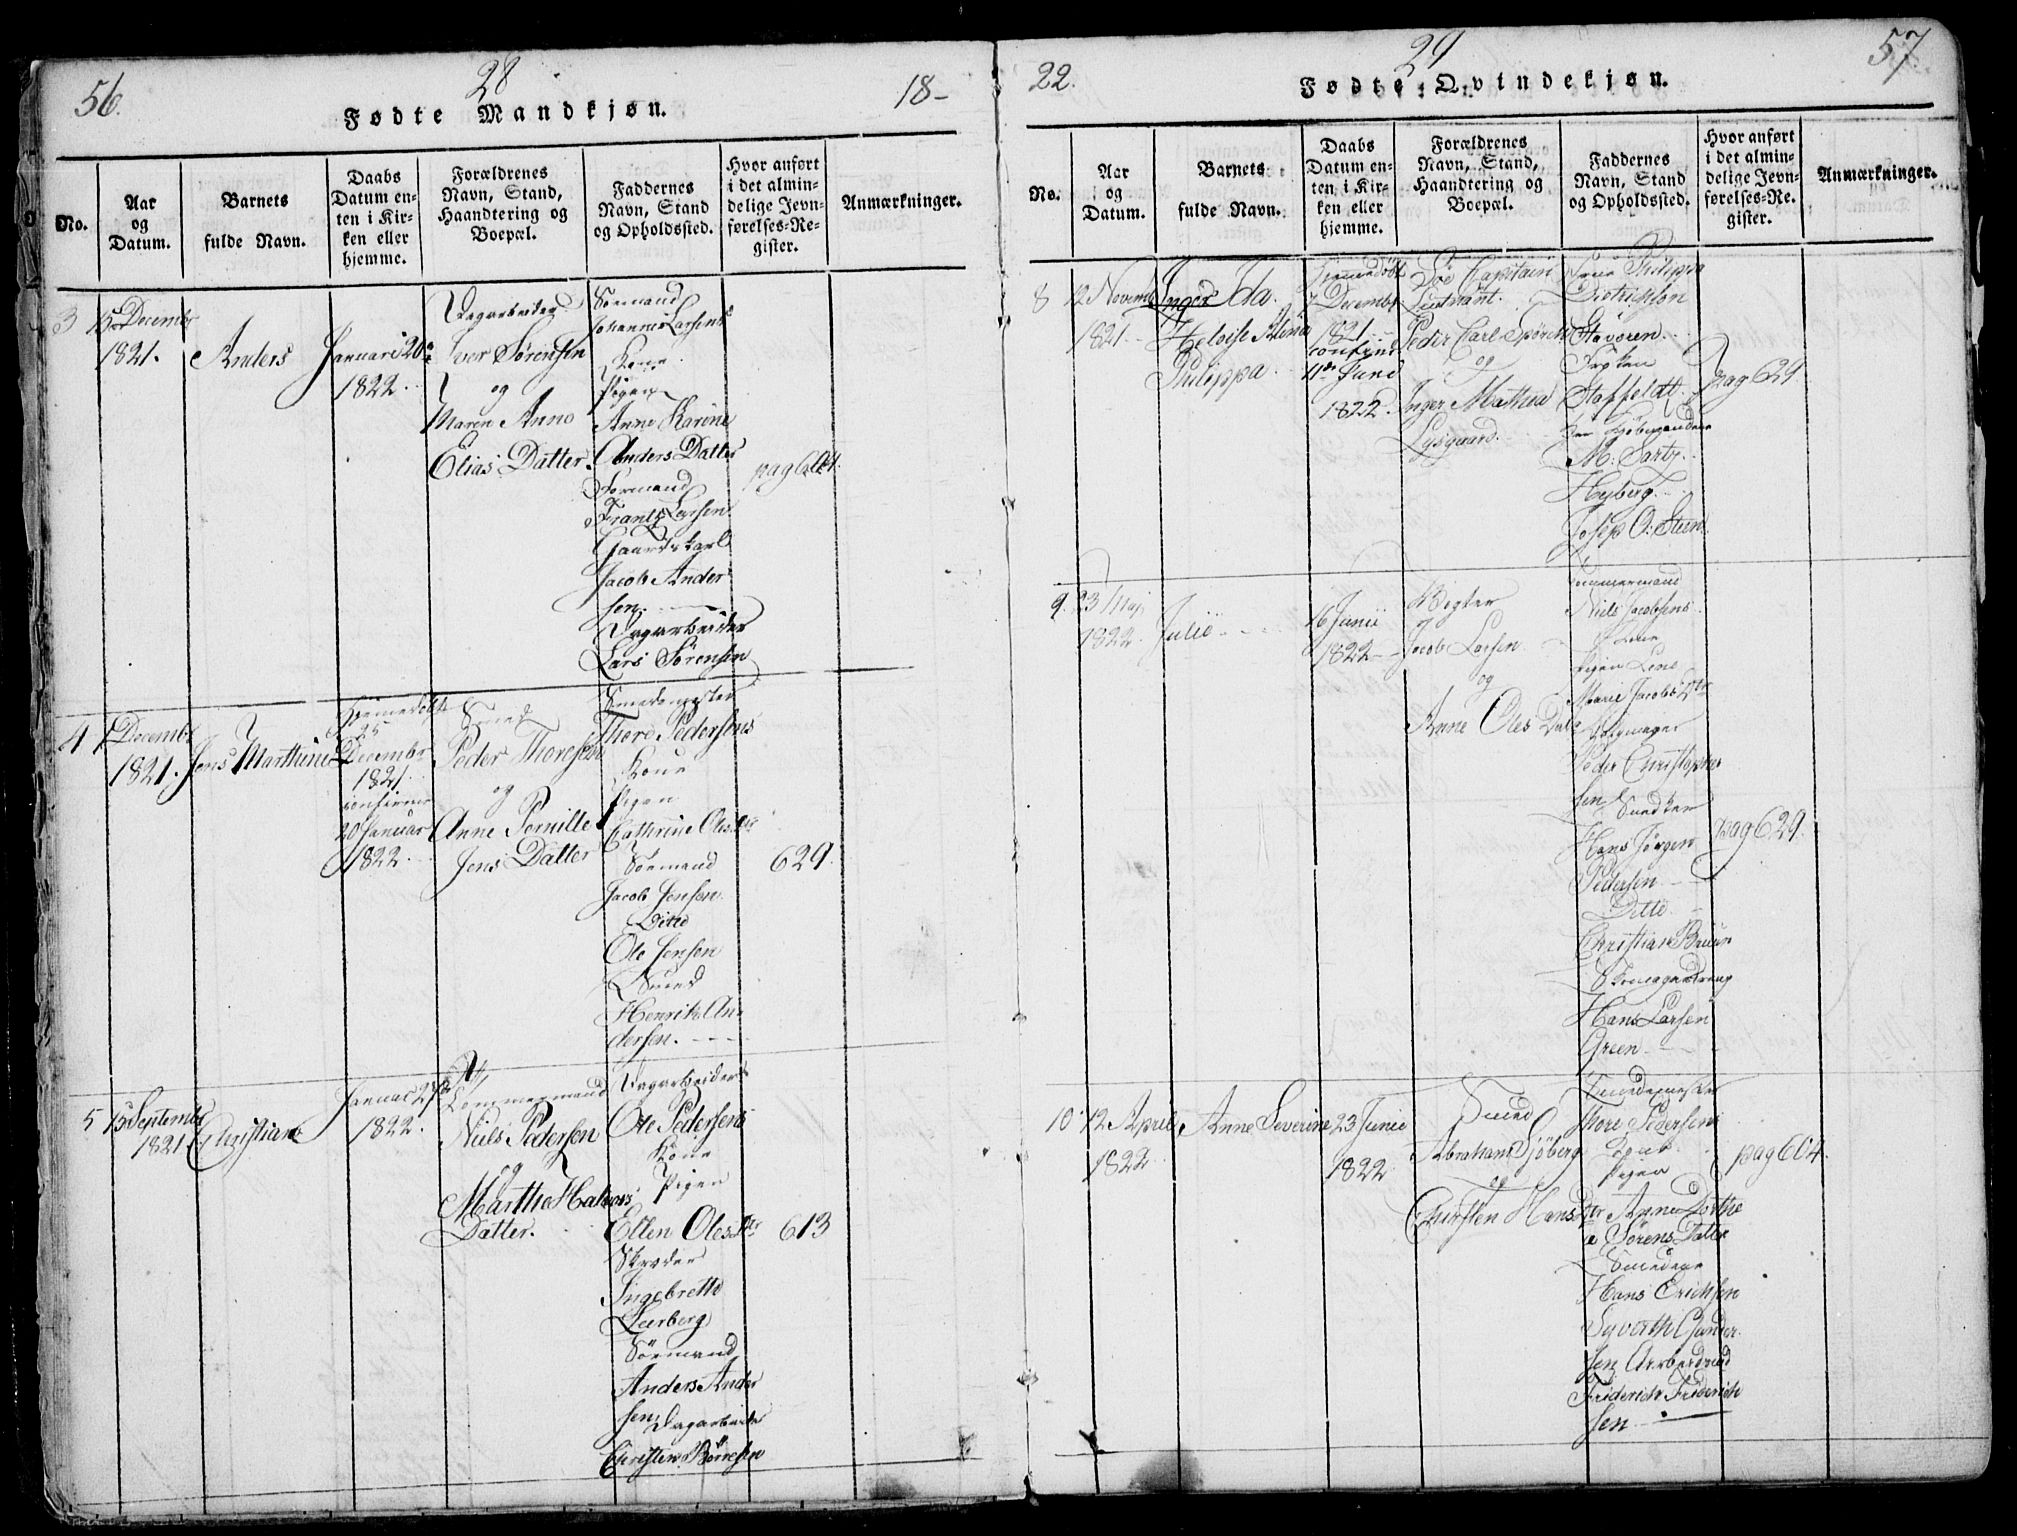 56.
28
18-
Fødte Mandkjøn.
No.
Aar
og
Datum.
Barnets
fulde Navn.
Daabs
Datum en-
ten i Kir-
ken eller
hjemme.
Forældrenes
Navn, Stand,
Haandtering og
Boepæl.
Faddernes
Navn, Stand
og Opholdssted.
Hvor anført
i det almin-
delige Jevn-
førelses-Re-
gister.
Anmærkninger.
3
15 Decembr
1821.
Anders
Januari 20
1822.
Dagarbeider
Iver Sørensen
og
Maren Anno
Elias Datter.
Sørmand
Johannes Larsens
Kone
Pigen
Anne Karine
Anders Datter
Sørmand
Frantz Larsen
Gaardskarl
Jacob Ander
sen.
Dagarbeider
Lars Sørensen
4
1 Decembr
1821.
Jens Marthin
Hjemedøbt
25
Decembr
1821
confirmer
20 Januar
1822.
Smed
Peder Thoresen
og
Anne Pernille
Jens Datter
Smedemester
Thore Pedersens
Kone
Pigen
Cathrine Oles Dtr
Sørmand
Jacob Jensen
Ditto
Ole Jensen
Smed
Henrik An-
dersen.
629.
5
15 September
1821
Christian
Januar 27
1822.
Tømmermand
Niels Pedersen
og
Marthe Halvors
Datter.
Dagarbeider
Ole Pedersens
Kone
Pigen
Ellen Oles Dtr
Skræder
Ingebretto
Leerberg
Sørmand
Anders Ander
sen, Dagarbeider
Christen Børresen
613
22.
29
57
Fødte Qvindekjøn.
No.
Aar
og
Datum.
Barnets
fulde Navn.
Daabs
Datum en-
ten i Kir-
ken eller
hjemme.
Forældrenes
Navn, Stand,
Haandtering og
Boepæl.
Faddernes
Navn, Stand
og Opholdssted.
Hvor anført
i det almin-
delige Jevn-
førelses-Re-
gister.
Anmærkninger.
8
12 Novembr
1821.
Inger Ida
Heloise Alena
Philippa
Hjemedøbt
7 Decembr
1821
confirm
11 Juni
1822.
Søe Capitain
Lieutnant
Peder Carl Spørck
og
Inger Mathea
Lysgaard.
Frue Philippa
Dietrichson
Støvoren
Frøken
Staffeldt
Her Kjøbmændene
M: Sartz
Heyberg
Josep O: Steen
pag 629
9.
23 Maj
1822.
Julie
16 Junii
1822
Vegter
Jacob Larsen
og
Anne Oles Datr
Tømmermand
Niels Jacobsens
Kone
Pigen Lene
Marie Jacobs Dtr
Peder Christopher
sen
Snedker
Hans Jørgen
Pedersen
Ditto
Christian Bruun
Skomagerdreng
Hans Larsen
Green
pag 629.
10
12 April
1822
Anne Severine
23 Junii
1822
Smed
Abraham Sjøberg
og
Chirsten Hans Dtr
Smedemester
Thore Pedersens
Kone
Pigen
Anne Dorthe
a Sørens Datter
Smedene
Hans Erichsen
Syverth Gunder-
sen, Arbeidsmd
Friderich Friderich
sen
pag 604.